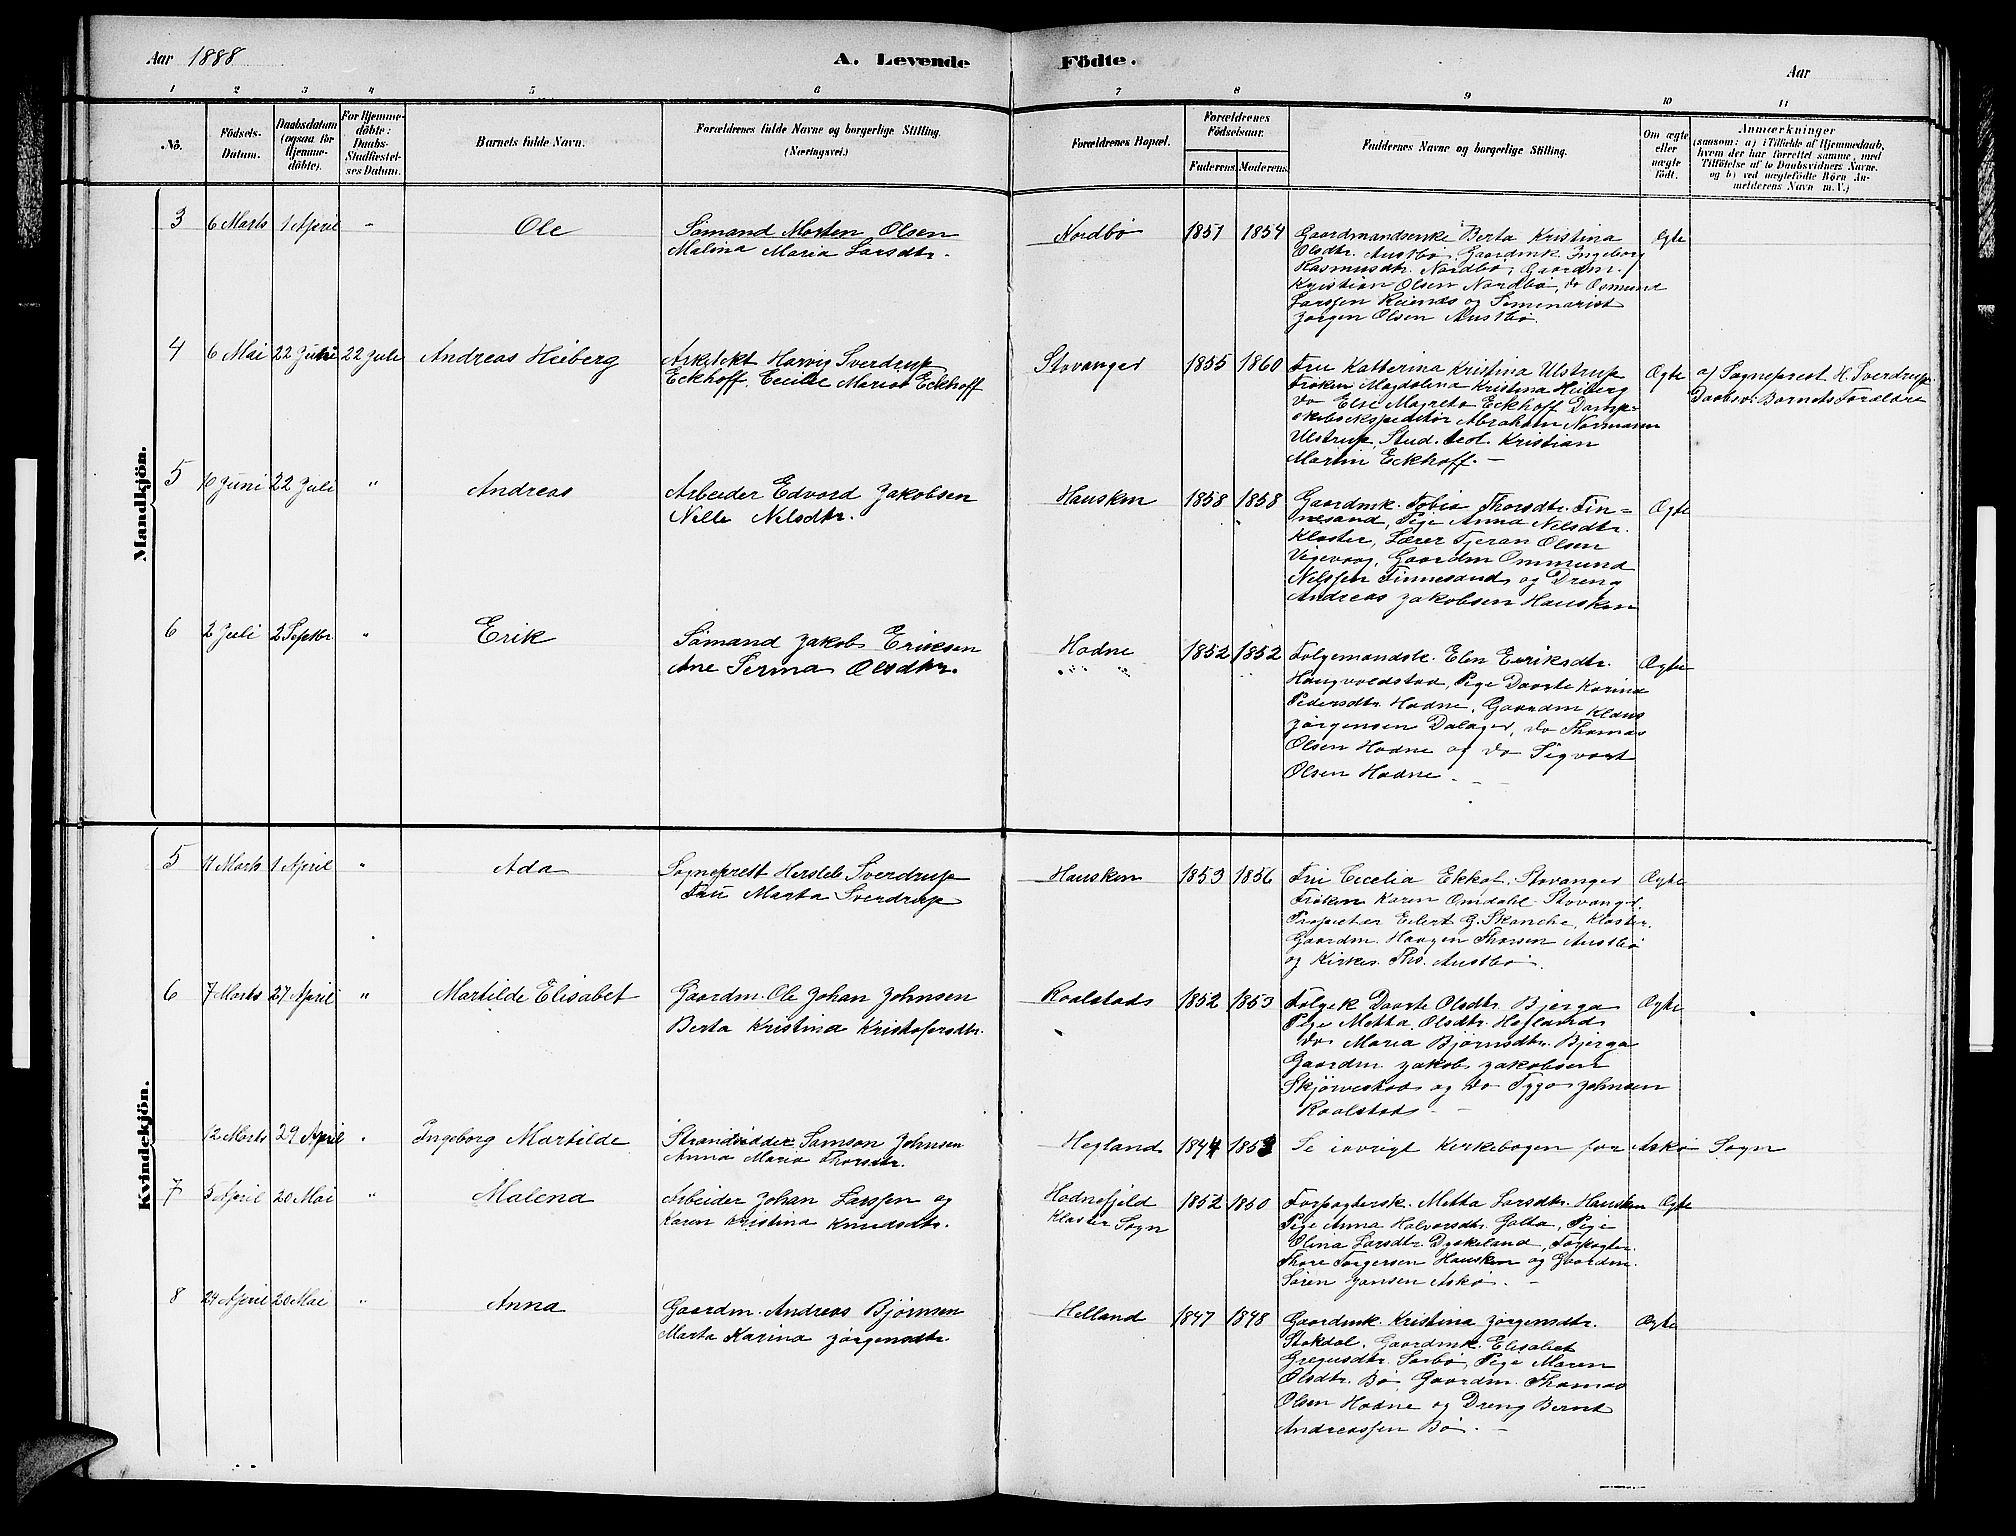 Aar 1888
A. Levende Födte.
Aar
1 2 3 4 5 6 7 8 9 10 11
No.
Födsels-Datum.
Daabsdatum (ogsaa for Hjemmedöbte).
For Hjemmedöbte: Daabs-Stadfæstelses Datum.
Barnets fulde Navn.
Forældrenes fulde Navne og borgerlige Stilling. (Næringsvei.)
Forældrenes Bopæl.
Forældrenes Födselsaar.
Faderens. Moderens.
Faddernes Navne og borgerlige Stilling.
Om ægte eller uægte födt.
Anmærkninger
(saasom: a) i Tilfælde af Hjemmedaab, hvem der har forrettet samme, med Tilföielse af to Daabsvidners Navne. og b) ved uægtefödte Børn Anmelderens Navn m. V.)
Mandkjön.
3 6 Marts 1 April " Ole
Sømand Morten Olsen
Malina Maria Larsdtr.
Nordbø 1851 1854
Gaardmandsenke Berta Kristina
Olsdtr. Austbø, Gaardmk. Ingeborg
Rasmusdtr. Nordbø, Gaardm.
Kristian Olsen Nordbø, do Osmund
Larssen Reienes og Seminarist
Jørgen Olsen Austbø.
Ægte
4 6 Mai 22 Juni 22 Juli Andreas Heiberg
Arkitekt Harvig Sverdrup
Eckhoff, Cecilie Marie Eckhoff
Stavanger 1855 1860
Fru Katherina Kristina Ulstrup
Frøken Magdalina Kristina Heiberg
do Else Magreta Eckhoff Damp-
skibsekspeditør Abraham Normann
Ulstrup, Stud. teol. Kristian
Martin Eckhoff. —
Ægte
af Sogneprest H. Sverdrup.
Daabsv: Barnets Forældre
5 10 Juni 22 Juli " Andreas
Arbeider Edvard Jakobsen
Nille Nilsdtr.
Hausken 1858 1858
Gaardmk. Tobia Thorsdtr. Fin=
nesand, Pige Anna Nilsdtr.
Kloster, Lærer Tjeran Olsen
Vigevaag, Gaardm Ommund
Nilssen Finnesand og Dreng
Andreas Jakobsen Hausken
Ægte
6 2 Juli 2 Septbr. " Erik
Sømand Jakob Eriksen
Ane Serina Olsdtr.
Hodne 1852 1852
Følgemandsk. Elen Eeriksdtr.
Haugvaldstad, Pige Daarte Karina
Pedersdtr. Hodne, Gaardm Klaus
Jørgensen Dalager, do Thomas
Olsen Hodne og do Sigvart
Olsen Hodne. —
Ægte
Kvindekjön.
5 7 Marts 1 April " Ada
Sogneprest Hersleb Sverdrup
Fru Marta Sverdrup
Hausken 1853 1856
Fru Cecelia Ekkof. Stavanger
Frøken Karen Omdahl Stavanger.
Proprietær Eilert G. Skanche, Kloster.
Gaardm. Haagen Thorsen Austbø
og Kirkes. Ths. Austbø.
Ægte
6 7 Marts 27 April " Martilde Elisabet
Gaardm. Ole Johan Johnsen
Berta Kristina Kristofersdtr.
Raalstads 1852 1853
Følgek Daarte Olsdtr. Bjerga
Pige Metta Olsdtr. Hegland
do Maria Bjørnsdtr. Bjerga
Gaardm. Jakob Jakobsen
Skjørvestad og do Tygo Johnsen
Raalstads —
Ægte
12 Marts 29 April " Ingeborg Martilde
Strandsidder Samson Johnsen
Anna Maria Thorsdtr.
Hegland 1844 1853
Se iøvrigt Kirkebogen for Askø Sogn
7 3 April 20 Mai " Malena
Arbeider Johan Larssen og
Karen Kristina Knudsdtr.
Hodnefjeld
Kloster Sogn
1852 1850
Forpagtersk. Metta Larsdtr. Hausken
Pige Anna Halvorsdtr. Galta, Pige
Olina Larsdtr. Dyskeland, Forpagter
Thore Torgersen Hausken og Gaardm.
Søren Jansen Askø. —
Ægte
8 24 April 20 Mai " Anna
Gaardm. Andreas Bjørnsen
Marta Karina Jørgensdtr.
Helland 1847 1848
Gaardmk Kristina Jørgensdtr.
Stokdal, Gaardmk. Elisabet
Gregusdtr. Sørbø, Pige Maren
Olsdtr. Bø, Gaardm. Thomas
Olsen Hodne og Dreng Bernt
Andreassen Bø. —
Ægte